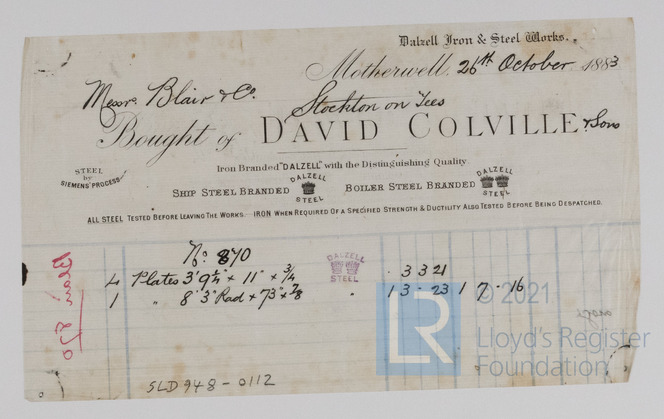 Dalzell Iron & Steel Works.
Motherwell. 26th October 1883
Messrs. Blair & Co. Stockton on Tees
Bought of DAVID COLVILLE & Sons
Iron Branded "DALZELL" with the Distinguishing Quality.
STEEL by SIEMENS' PROCESS
SHIP STEEL BRANDED DALZELL STEEL BOILER STEEL BRANDED DALZELL STEEL
ALL STEEL TESTED BEFORE LEAVING THE WORKS. IRON WHEN REQUIRED OF A SPECIFIED STRENGTH & DUCTILITY ALSO TESTED BEFORE BEING DESPATCHED.
No. 870
DALZELL STEEL
4 Plates 3' 9½" × 11" × ¾ 3 3 21
1 " 8' 3" Rad × 7'3" × ⅞ " 13 - 23 17 - 16
Blair
© 2021
Lloyd's Register
Foundation
LR
SLD948-0112